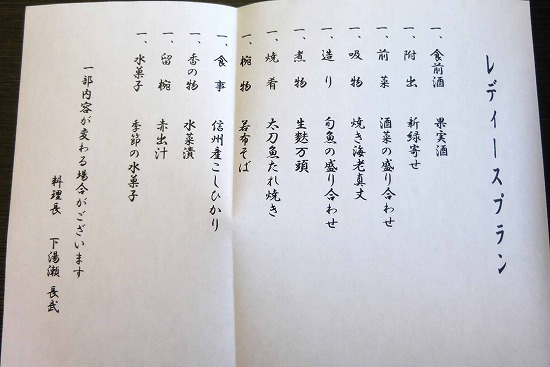 レディースプラン
一、食前酒　果実酒
一、附出　新緑寄せ
一、前菜　酒菜の盛り合わせ
一、吸物　焼き海老真丈
一、造り　旬魚の盛り合わせ
一、煮物　生麩万頭
一、焼肴　太刀魚たれ焼き
一、椀物　若布そば
一、食事　信州産こしひかり
一、香の物　水菜漬
一、留椀　赤出汁
一、水菓子　季節の水菓子
一部内容が変わる場合がございます
料理長　下湯瀬　長武